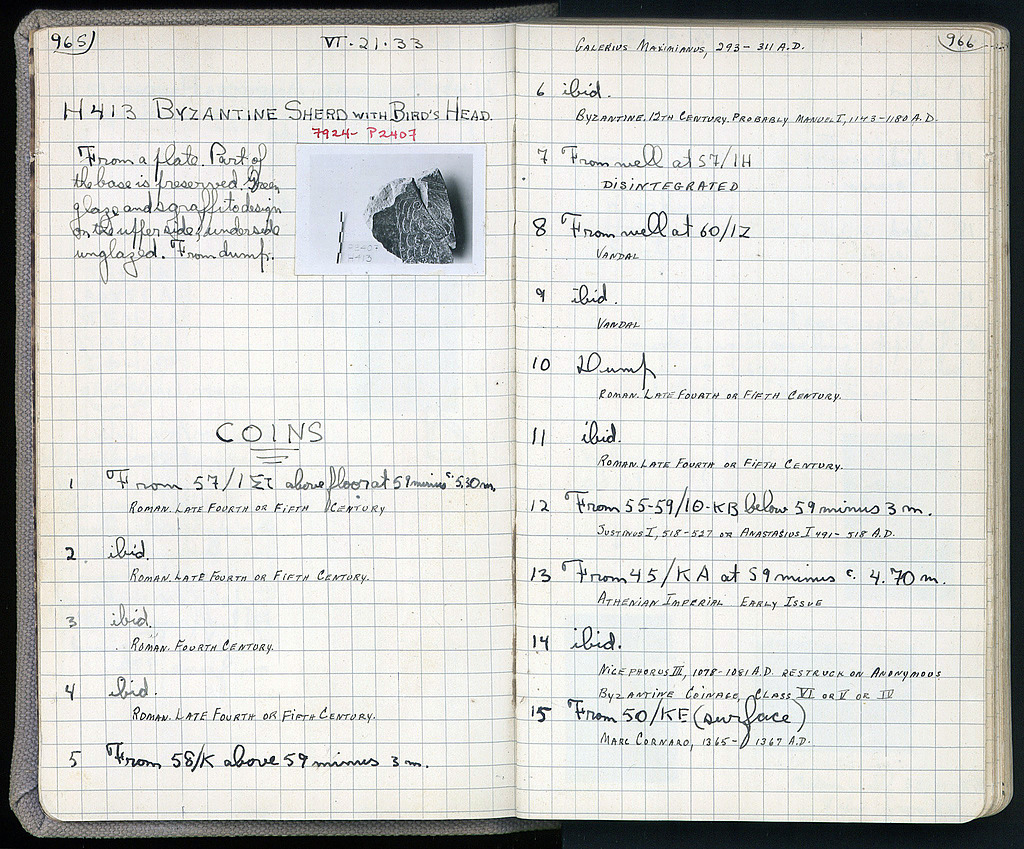 965
VI·21·33
H413 BYZANTINE SHERD WITH BIRD'S HEAD.
7924- P2407
From a plate. Part of
the base is preserved. Green
glaze and sgraffito design
on the upper side, underside
unglazed. From dump.
P2407
H413
COINS
1 From 57/1 ΣΤ above floor at 59 minus c. 5.30 m.
ROMAN. LATE FOURTH OR FIFTH CENTURY
2 ibid.
ROMAN. LATE FOURTH OR FIFTH CENTURY.
3 ibid.
ROMAN. FOURTH CENTURY.
4 ibid.
ROMAN. LATE FOURTH OR FIFTH CENTURY.
5 From 58/K above 59 minus 3 m.
966
GALERIUS MAXIMIANUS, 293- 311 A.D.
6 ibid.
BYZANTINE. 12TH CENTURY. PROBABLY MANUEL I, 1143-1180 A.D.
7 From well at 57/1H
DISINTEGRATED
8 From well at 60/1Z
VANDAL
9 ibid.
VANDAL
10 Dump
ROMAN. LATE FOURTH OR FIFTH CENTURY.
11 ibid.
ROMAN. LATE FOURTH OR FIFTH CENTURY.
12 From 55-59/10-KB below 59 minus 3 m.
JUSTINUS I, 518-527 OR ANASTASIUS I 491- 518 A.D.
13 From 45/KA at 59 minus c. 4.70 m.
ATHENIAN IMPERIAL EARLY ISSUE
14 ibid.
NICEPHORUS III, 1078-1081 A.D. RESTRUCK ON ANONYMOUS
BYZANTINE COINAGE, CLASS VI OR V OR IV
15 From 50/KE (surface)
MARC CORNARO, 1365- 1367 A.D.